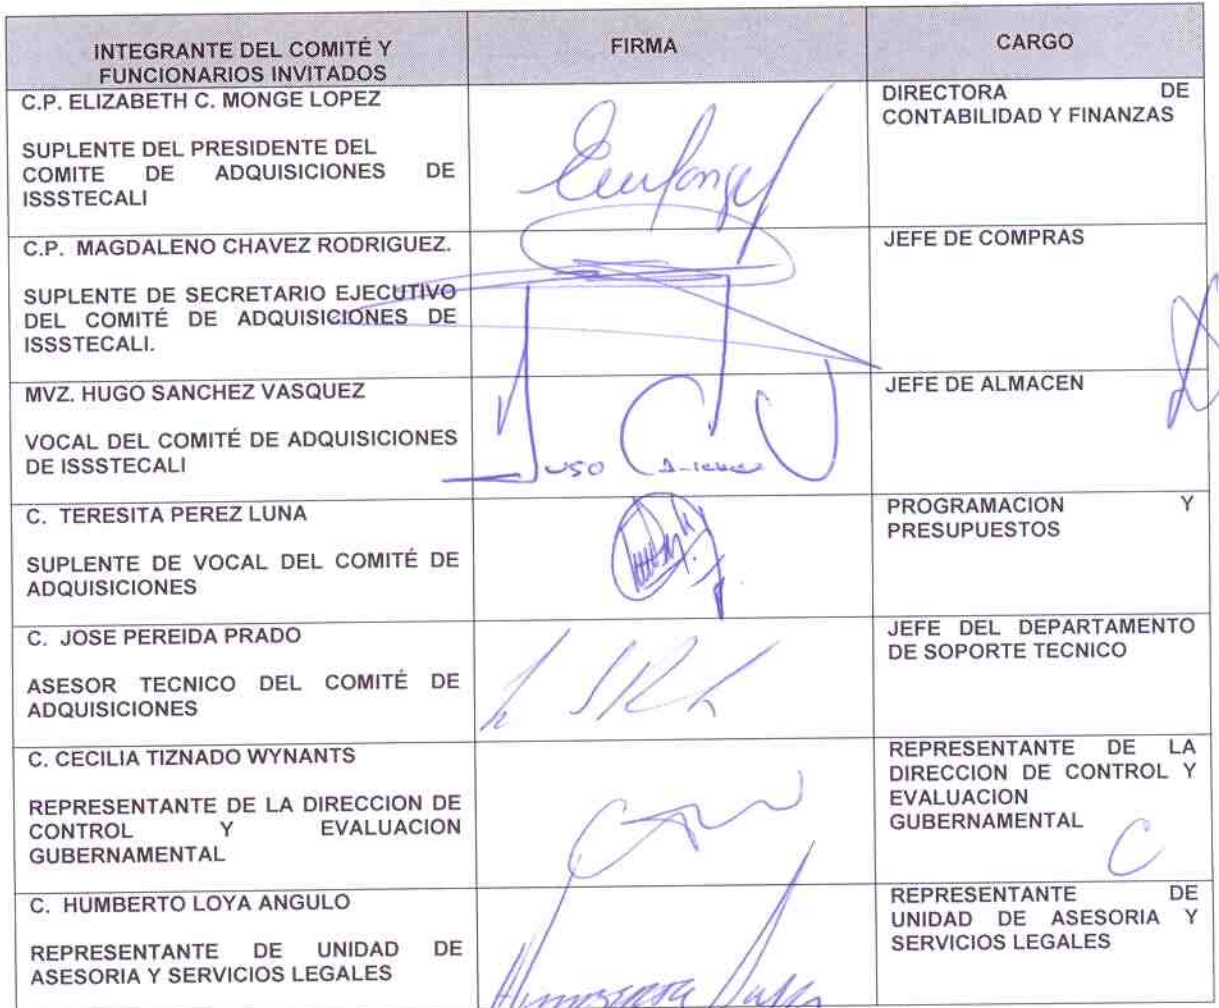 INTEGRANTE DEL COMITÉ Y
FUNCIONARIOS INVITADOS
FIRMA
CARGO
C.P. ELIZABETH C. MONGE LOPEZ
SUPLENTE DEL PRESIDENTE DEL
COMITE DE ADQUISICIONES DE
ISSSTECALI
DIRECTORA DE
CONTABILIDAD Y FINANZAS
C.P. MAGDALENO CHAVEZ RODRIGUEZ.
SUPLENTE DE SECRETARIO EJECUTIVO
DEL COMITÉ DE ADQUISICIONES DE
ISSSTECALI.
JEFE DE COMPRAS
MVZ. HUGO SANCHEZ VASQUEZ
VOCAL DEL COMITÉ DE ADQUISICIONES
DE ISSSTECALI
JEFE DE ALMACEN
C. TERESITA PEREZ LUNA
SUPLENTE DE VOCAL DEL COMITÉ DE
ADQUISICIONES
PROGRAMACION Y
PRESUPUESTOS
C. JOSE PEREIDA PRADO
ASESOR TECNICO DEL COMITÉ DE
ADQUISICIONES
JEFE DEL DEPARTAMENTO
DE SOPORTE TECNICO
C. CECILIA TIZNADO WYNANTS
REPRESENTANTE DE LA DIRECCION DE
CONTROL Y EVALUACION
GUBERNAMENTAL
REPRESENTANTE DE LA
DIRECCION DE CONTROL Y
EVALUACION
GUBERNAMENTAL
C. HUMBERTO LOYA ANGULO
REPRESENTANTE DE UNIDAD DE
ASESORIA Y SERVICIOS LEGALES
REPRESENTANTE DE
UNIDAD DE ASESORIA Y
SERVICIOS LEGALES